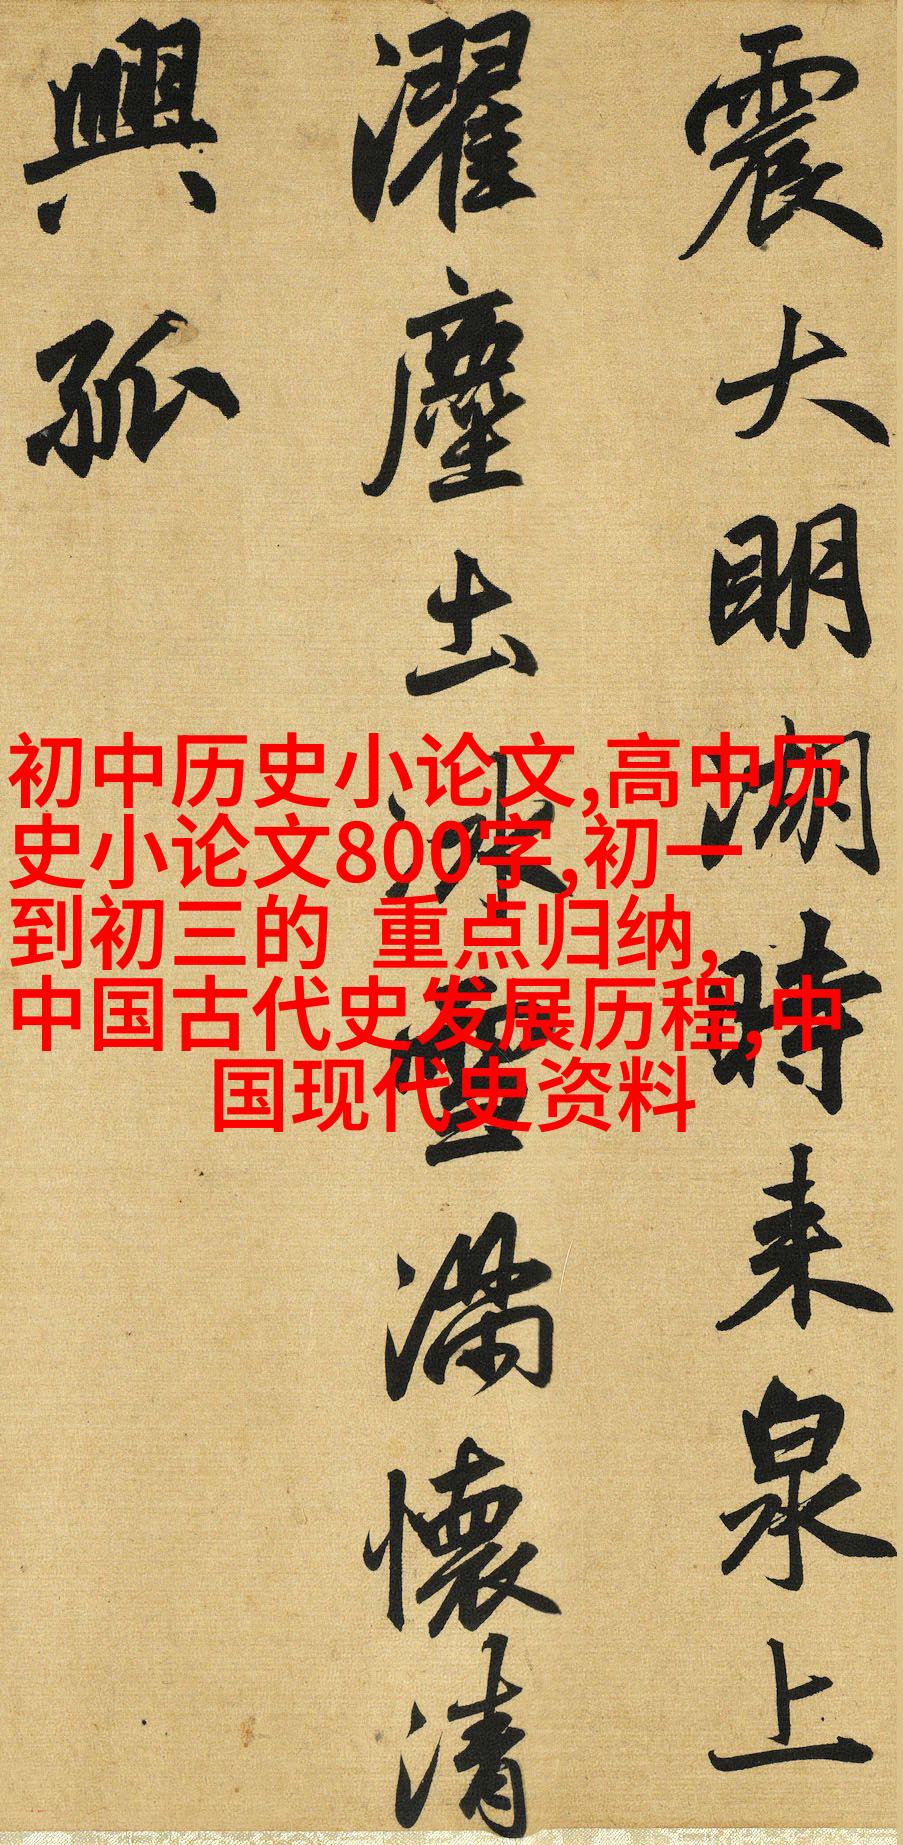 震大明湖時来泉上
濯塵土冰雪滿懷清
興孤
初中历史小论文,高中历
史小论文800字,初一
到初三的 重点归纳,
中国古代史发展历程,中
国现代史资料